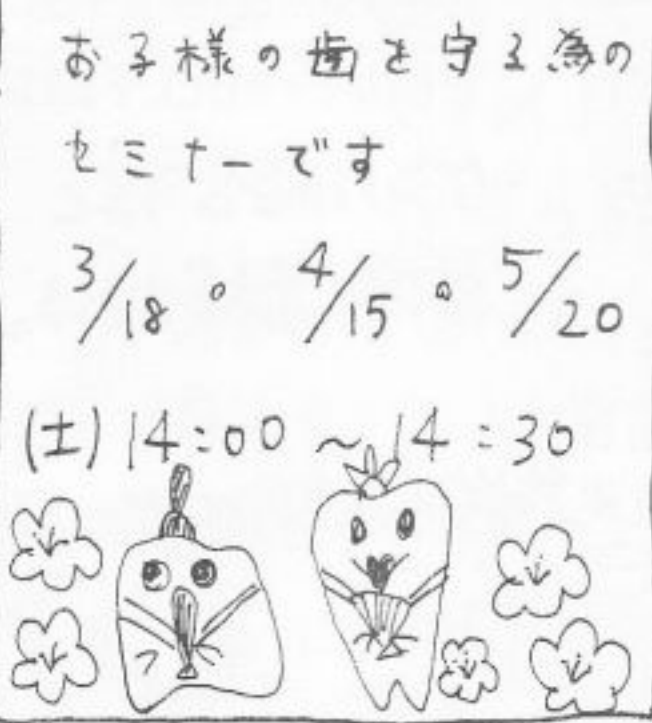 お子様の歯を守る為の
セミナーです
3/18。 4/15。 5/20
(土) 14:00 ~ 14:30